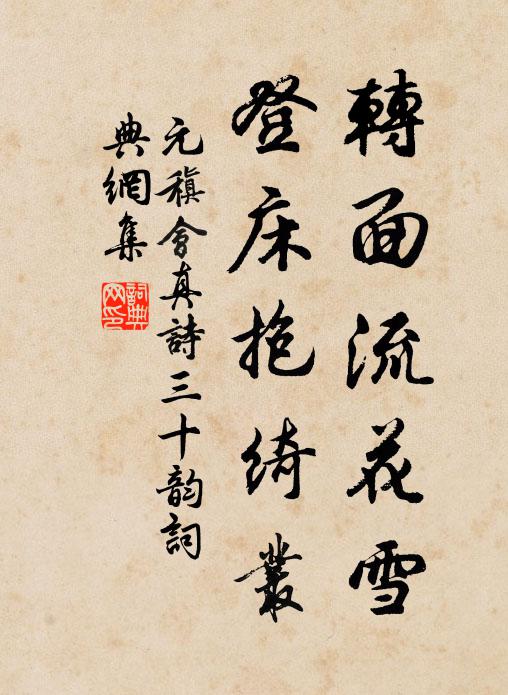 轉面流花雪
登床抱綺叢
元稹會真詩三十韵詞
典網集
詞典網印